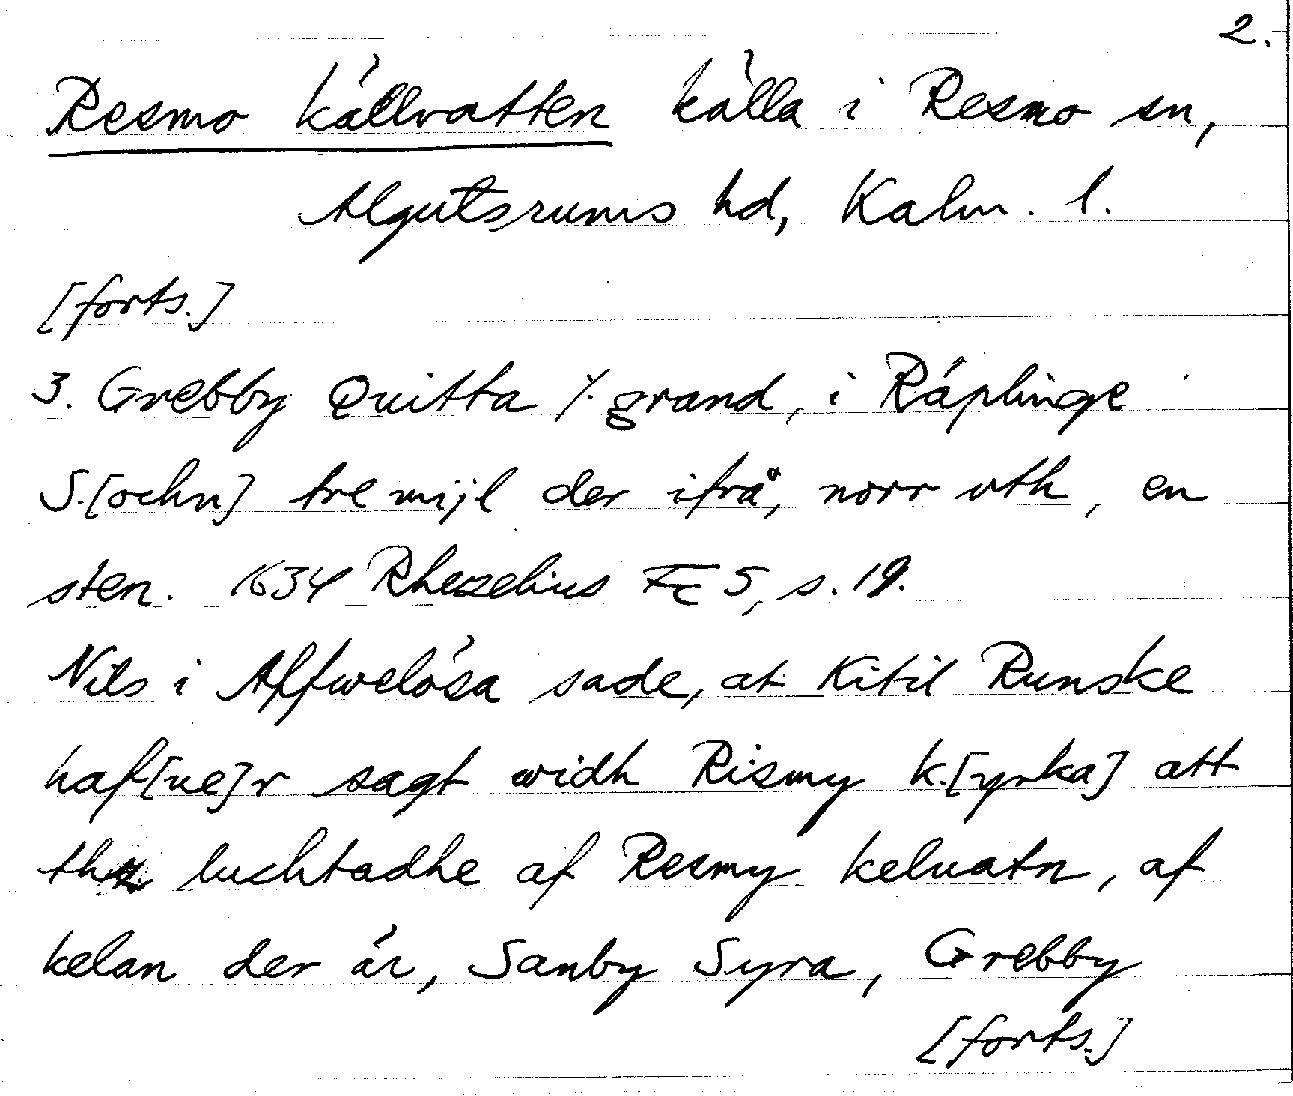 2.
Resmo källvatten källa i Resmo sn,
Algutsrums hd, Kalm. l.
[forts.]
3. Grebby Quitta /. grand, i Räplinge
S.[ochn] tre mijl der ifrå, norr vth, en
sten. 1634 Rhezelius Fc 5, s. 19.
Nils i Affwelösa sade, at Kitil Runske
haf[ue]r sagt widh Rismy k.[yrka] att
luchtadhe af Resmy keluatn, af
kelan der är, Sanby Syra, Grebby
[forts.]